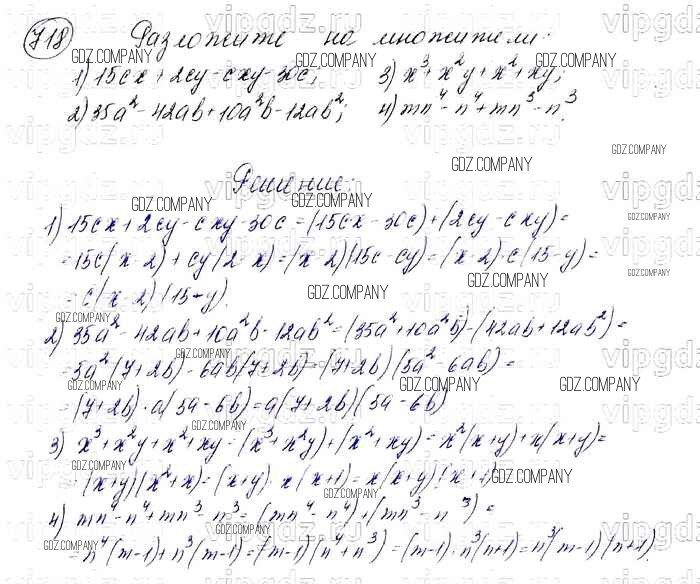 718 Разложите на множители:
1) 15cx + 2cy - cxy - 30c; 3) x³ + x²y + x² + xy;
2) 35a² - 42ab + 10a²b - 12ab²; 4) mn⁴ - n⁴ + mn³ - n³.
Решение:
1) 15cx + 2cy - cxy - 30c = (15cx - 30c) + (2cy - cxy) =
= 15c(x - 2) + cy(2 - x) = (x - 2)(15c - cy) = (x - 2)·c(15 - y) =
= c(x - 2)(15 - y).
2) 35a² - 42ab + 10a²b - 12ab² = (35a² + 10a²b) - (42ab + 12ab²) =
= 5a²(7 + 2b) - 6ab(7 + 2b) = (7 + 2b)(5a² - 6ab) =
= (7 + 2b)·a(5a - 6b) = a(7 + 2b)(5a - 6b)
3) x³ + x²y + x² + xy = (x³ + x²y) + (x² + xy) = x²(x + y) + x(x + y) =
= (x + y)(x² + x) = (x + y)·x(x + 1) = x(x + y)(x + 1)
4) mn⁴ - n⁴ + mn³ - n³ = (mn⁴ - n⁴) + (mn³ - n³) =
= n⁴(m - 1) + n³(m - 1) = (m - 1)(n⁴ + n³) = (m - 1)·n³(n + 1) = n³(m - 1)(n + 1).
GDZ.COMPANY
vipgdz.ru